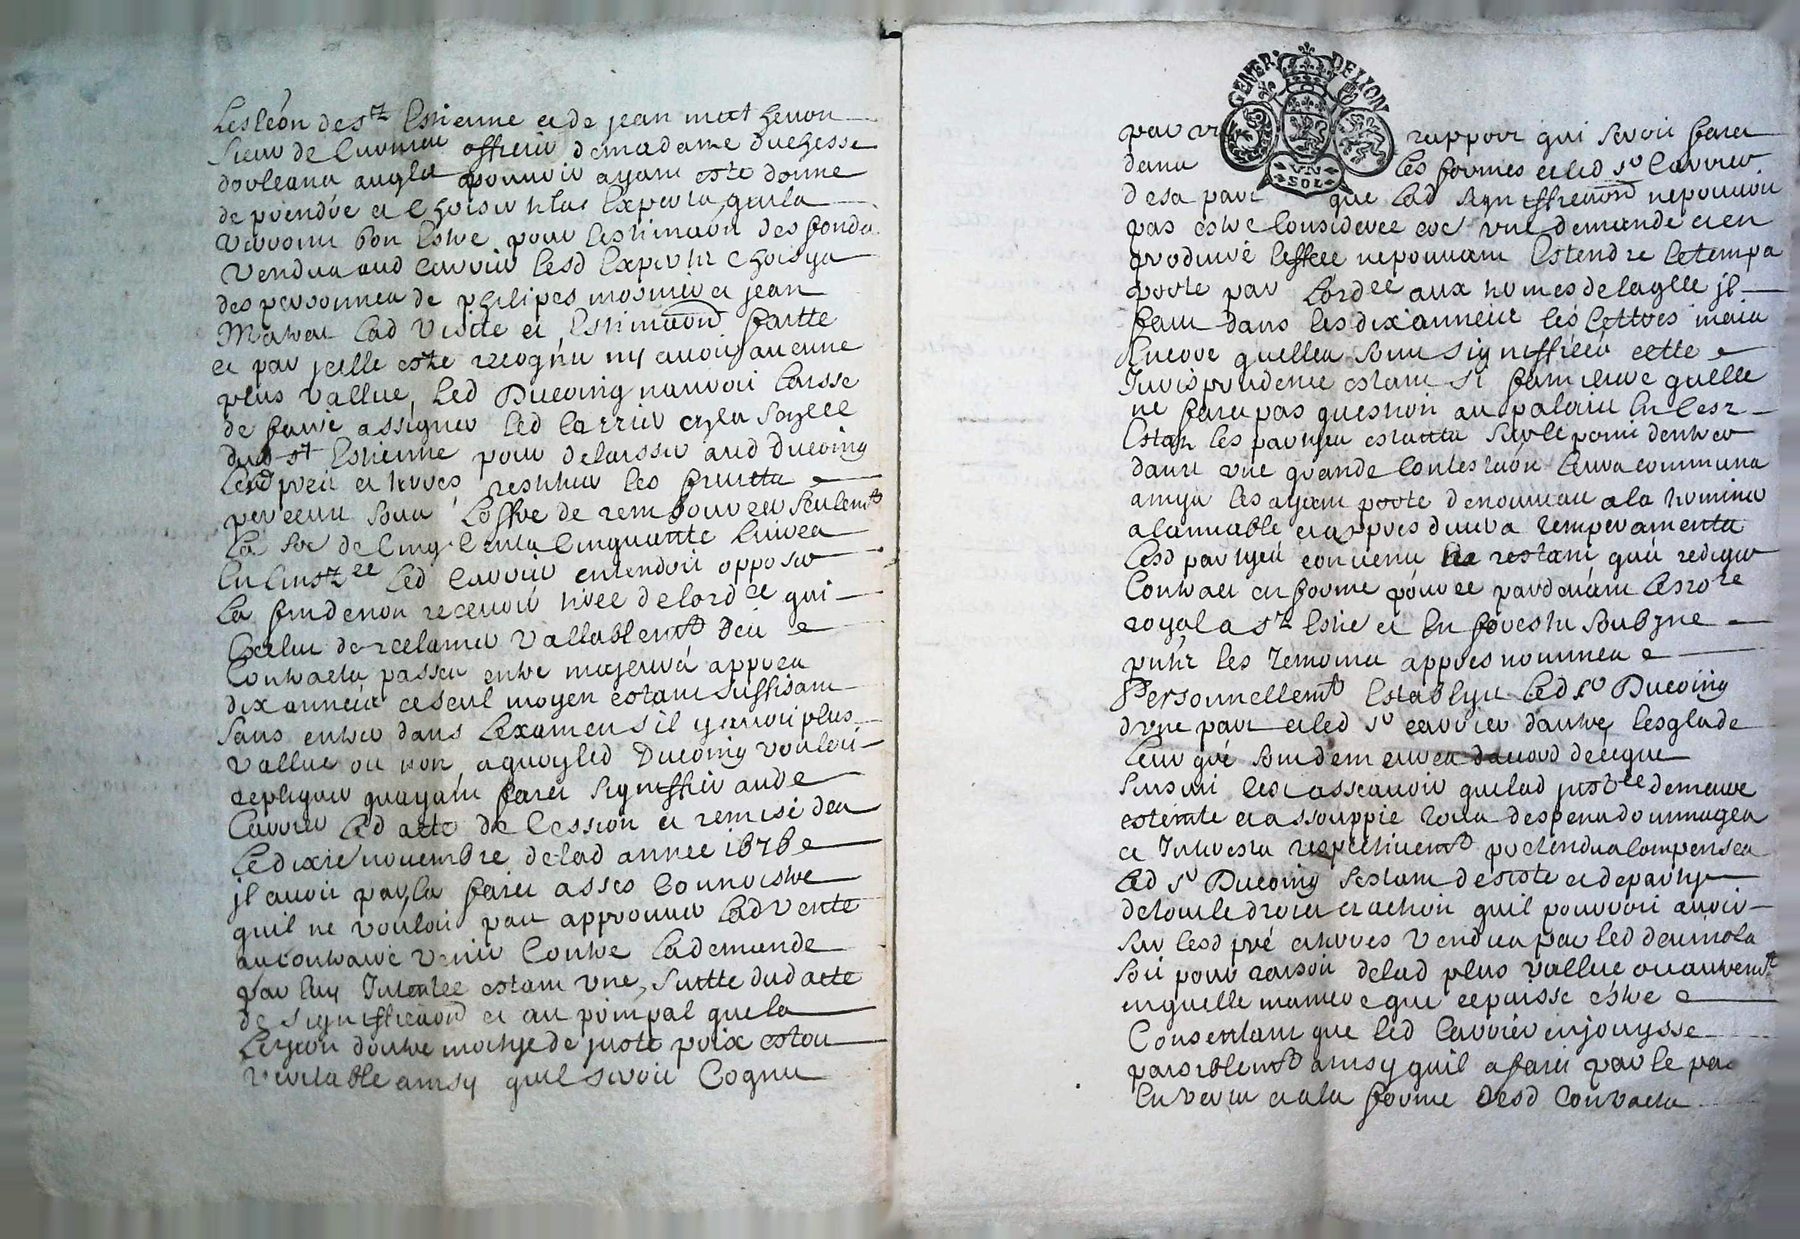 de St Estienne et de jean mat henon
Sieur de officier de madame duchesse
dorleans auquel pouvoir ayant esté donné
de prendre et choisir telz expertz quilz
verront bon estre pour lestimaōn des fonds
vendus aud Carrier lesd expertz choisys
des personnes de philipes mosnier et jean
lad visite et estimaōn faitte
et par jcelle esté recognu ny avoir aucune
plus vallue, led Ducoing nauroit laissé
de faire assigner led Carrier
dud St Estienne pour delaisser aud Ducoing
lesd preü et terres, restituer les fruitz
perceuu souz loffre de rembourcer seulemt
la soē de cinq centz cinquante livres
en linstzce led Carrier entendoit opposer
la fin de non recevoir tirée de lordce qui
exclut de reclamer vallablemt des
Contractz passez entre majeurs appres
dix années ce seul moyen estant suffisant
sans entrer dans lexamen sil y avoit plus
vallue ou non, a quoy led Ducoing vouloit
repliquer quayant faict signiffier aud
Carrier led acte de cession et remise des
le dixie novembre de lad année 1676
jl avoit par la faict asses connoistre
quil ne vouloit pas approuver lad vente
au contraire venir contre la demande
par luy Intentée estant une suitte dud acte
de signifficaōn et au prinpal que la
lezion doutre moitye de juste prix estoit
veritable ainsy quil seroit cognu
GENER DE LION
UN SOL
par rapport qui seroit faict
dans les formes et led Sr Carrier
de sa part que lad signifficaōn ne pouvoit
pas estre consideree coē une demande et en
produire leffect ne pouvant estendre le temps
porté par lordce aux termes de laqlle jl
faut dans les dix années les lettres mais
encore quelles soint signiffiées cette
Jurisprudence estant si familiere quelle
ne faict pas question au palais en cest
estat les partyes estantz sur le point dentrer
dans une grande contestaōn leurs communs
amys les ayant porté de nouveau a la terminer
a lamiable et appres divers temperamentz
lesd partyes convenu ne restant quà rediger
contract en forme pardevant le nore
royal a St Estie et en forestz soubzne
putz les temoins appres nommez
Personnellemt establys led Sr Ducoing
dune part et led Sr Carrier dautre lesqlz de
leur gré sont demeurez daccord de ce que
sensuit scavoir que lad instzce demeure
esteinte et assouppie tous despens dommages
et Interestz respectivemt pretendus compensez
led Sr Ducoing sestant desisté et departy
de tout le droict et action quil pouvoit avoir
sur lesd pré et terres vendus par led demola
soit pour raison de lad plus vallue ou autremt
en quelle maniere que ce puisse estre
Consentant que led Carrier en jouysse
paisiblemt ainsy quil a faict par le pas
en vertu et a la forme desd Contractz